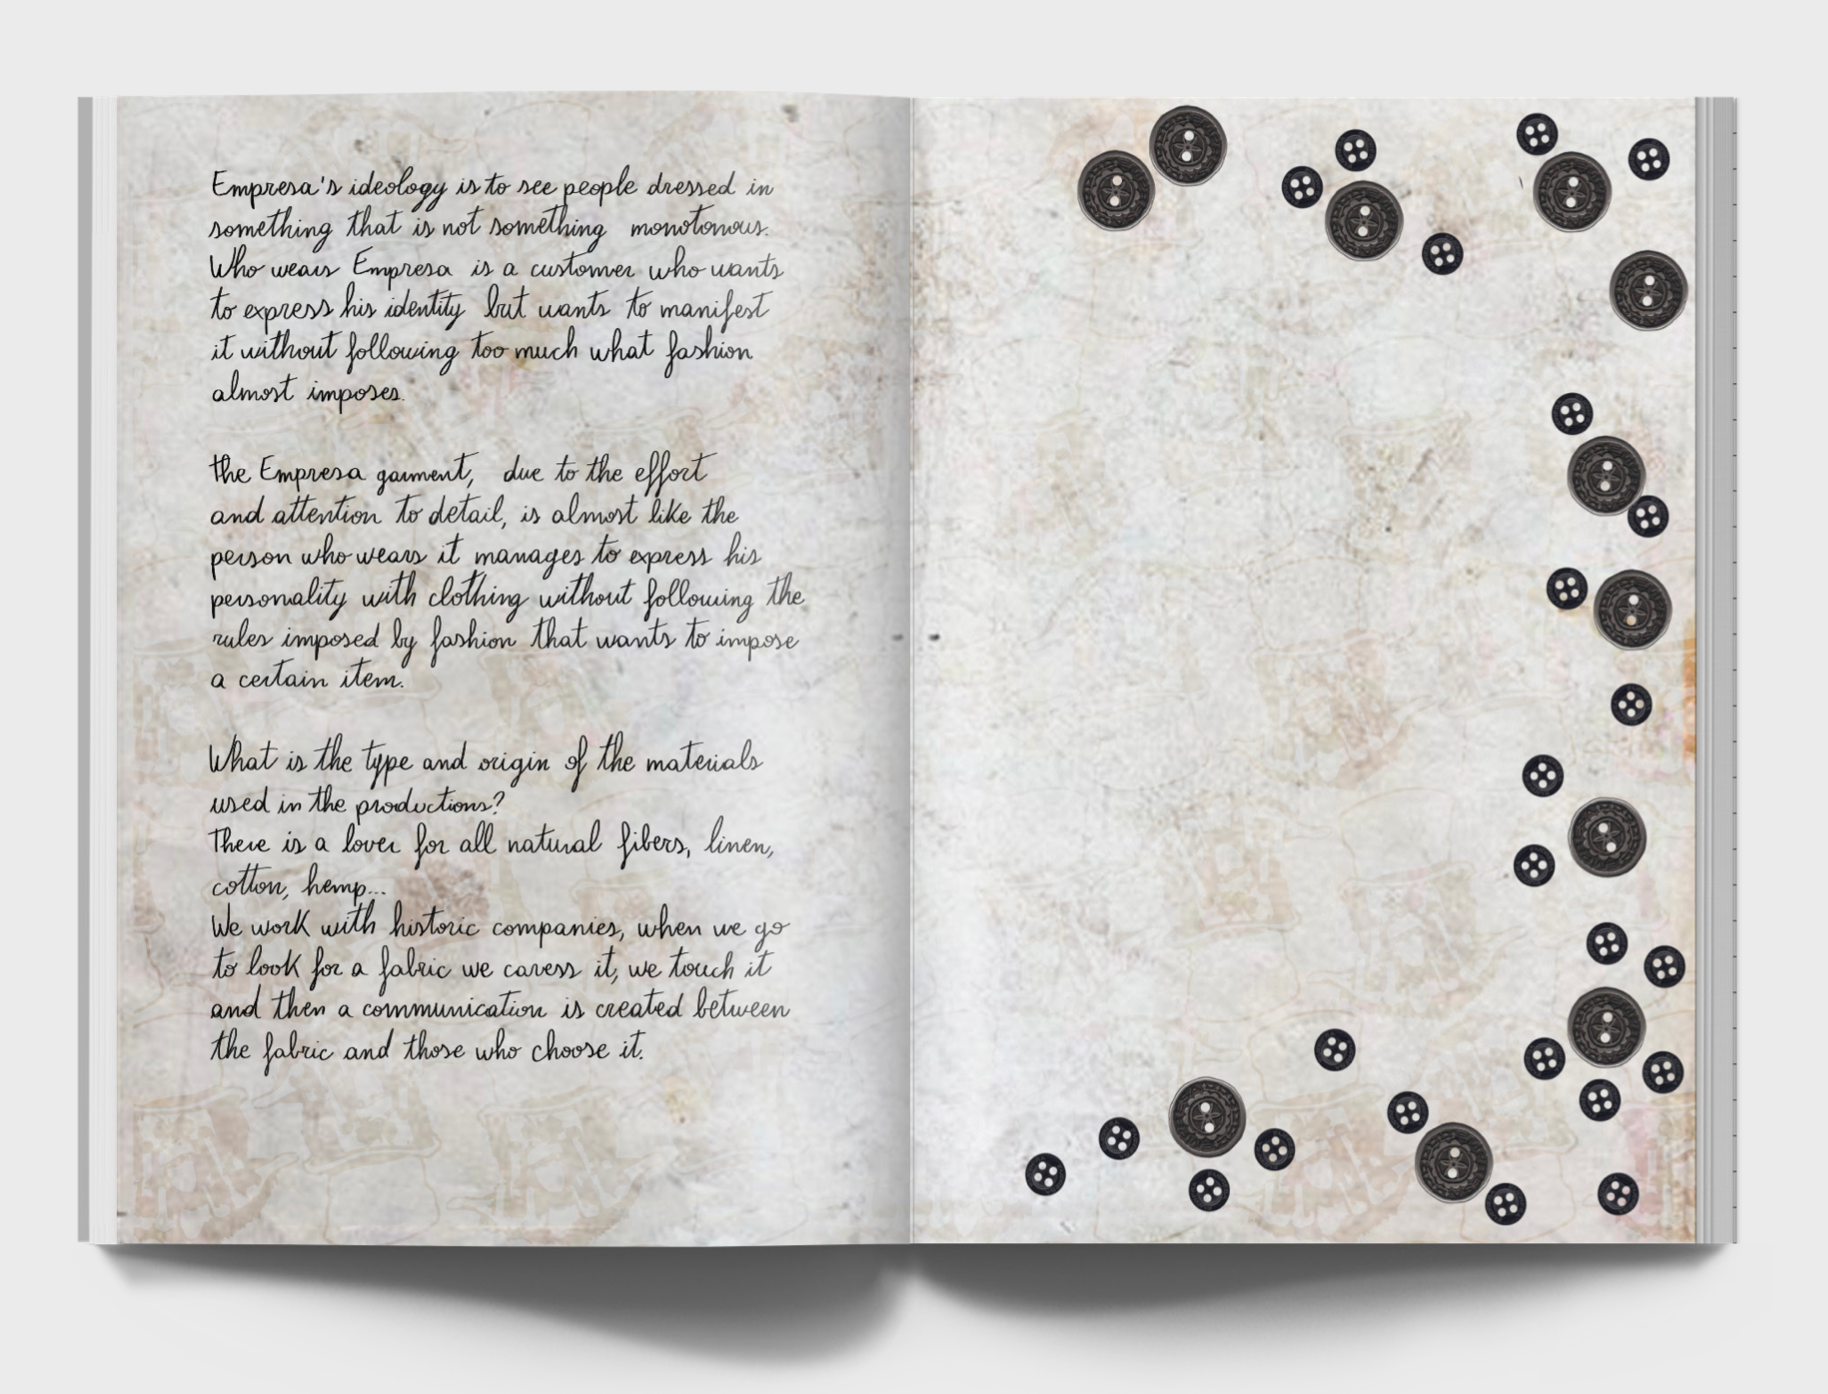 Empresa's ideology is to see people dressed in
something that is not something monotonous.
Who wears Empresa is a customer who wants
to express his identity but wants to manifest
it without following too much what fashion
almost imposes.
the Empresa garment, due to the effort
and attention to detail, is almost like the
person who wears it manages to express his
personality with clothing without following the
rules imposed by fashion that wants to impose
a certain item.
What is the type and origin of the materials
used in the productions?
There is a lover for all natural fibers, linen,
cotton, hemp...
We work with historic companies, when we go
to look for a fabric we caress it, we touch it
and then a communication is created between
the fabric and those who choose it.